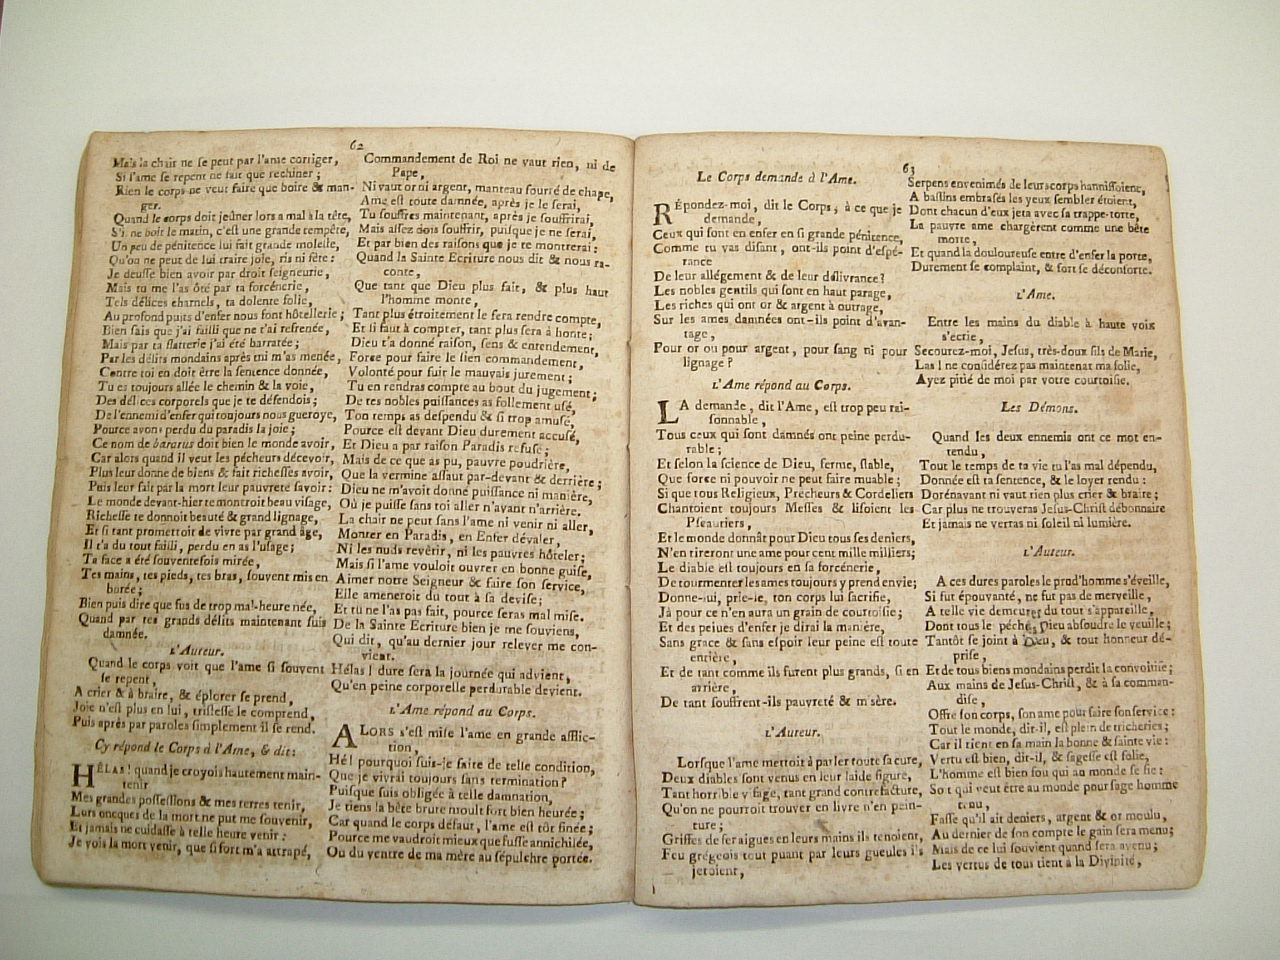 62
Mais la chair ne ſe peut par l'ame corriger,
Si l'ame ſe repent ne fait que rechiner ;
Rien le corps ne veut faire que boire & man-
ger.
Quand le corps doit jeûner lors a mal à la tête,
S'il ne boit le matin, c'eſt une grande tempête,
Un peu de pénitence lui fait grande moleſte,
Qu'on ne peut de lui traire joie, ris ni fête :
Je deuſſe bien avoir par droit ſeigneurie,
Mais tu me l'as ôté par ta forcénerie,
Tels délices charnels, ta dolente folie,
Au profond puits d'enfer nous font hôtellerie ;
Bien ſais que j'ai failli que ne t'ai refrenée,
Mais par ta flatterie j'ai été barratée ;
Par les délits mondains après mi m'as menée,
Contre toi en doit être la ſentence donnée,
Tu es toujours allée le chemin & la voie,
Des délices corporels que je te défendois ;
De l'ennemi d'enfer qui toujours nous gueroye,
Pource avons perdu du paradis la joie ;
Ce nom de bararus doit bien le monde avoir,
Car alors quand il veut les pécheurs décevoir,
Plus leur donne de biens & fait richeſſes avoir,
Puis leur fait par la mort leur pauvreté ſavoir :
Le monde devant-hier te montroit beau viſage,
Richeſſe te donnoit beauté & grand lignage,
Et ſi tant promettoit de vivre par grand âge,
Il t'a du tout failli, perdu en as l'uſage ;
Ta face a été ſouventefois mirée,
Tes mains, tes pieds, tes bras, ſouvent mis en
burée ;
Bien puis dire que fus de trop mal-heure née,
Quand par tes grands délits maintenant ſuis
damnée.
L'Auteur.
Quand le corps voit que l'ame ſi ſouvent
ſe repent,
A crier & à braire, & éplorer ſe prend,
Joie n'eſt plus en lui, triſteſſe le comprend,
Puis après par paroles ſimplement il ſe rend.
Cy répond le Corps à l'Ame, & dit :
HÉLAS ! quand je croyois hautement main-
tenir
Mes grandes poſſeſſions & mes terres tenir,
Lors oncques de la mort ne put me ſouvenir,
Et jamais ne cuidaſſe à telle heure venir :
Je vois la mort venir, que ſi fort m'a attrapé,
Commandement de Roi ne vaut rien, ni de
Pape,
Ni vaut or ni argent, manteau fourré de chape,
Ame eſt toute damnée, après je le ſerai,
Tu ſouffres maintenant, après je ſouffrirai,
Mais aſſez dois ſouffrir, puiſque je ne ſerai,
Et par bien des raiſons que je te montrerai :
Quand la Sainte Ecriture nous dit & nous ra-
conte,
Que tant que Dieu plus fait, & plus haut
l'homme monte,
Tant plus étroitement le fera rendre compte,
Et ſi faut à compter, tant plus ſera à honte ;
Dieu t'a donné raiſon, ſens & entendement,
Force pour faire le ſien commandement,
Volonté pour fuir le mauvais jurement ;
Tu en rendras compte au bout du jugement ;
De tes nobles puiſſances as follement uſé,
Ton temps as deſpendu & ſi trop amuſé,
Pource eſt devant Dieu durement accuſé,
Et Dieu a par raiſon Paradis refuſé ;
Mais de ce que as pu, pauvre poudrière,
Que la vermine aſſaut par-devant & derrière ;
Dieu ne m'avoit donné puiſſance ni manière,
Où je puiſſe ſans toi aller n'avant n'arrière.
La chair ne peut ſans l'ame ni venir ni aller,
Monter en Paradis, en Enfer dévaler,
Ni les nuds revêtir, ni les pauvres hôteler ;
Mais ſi l'ame vouloit ouvrer en bonne guiſe,
Aimer notre Seigneur & faire ſon ſervice,
Elle ameneroit du tout à ſa deviſe ;
Et tu ne l'as pas fait, pource ſeras mal miſe.
De la Sainte Ecriture bien je me ſouviens,
Qui dit, qu'au dernier jour relever me con-
vient.
Hélas ! dure ſera la journée qui advient,
Qu'en peine corporelle perdurable devient.
L'Ame répond au Corps.
ALORS s'eſt miſe l'ame en grande afflic-
tion,
Hé ! pourquoi ſuis-je faite de telle condition,
Que je vivrai toujours ſans termination ?
Puiſque ſuis obligée à telle damnation,
Je tiens la bête brure moult fort bien heurée ;
Car quand le corps défaut, l'ame eſt tôt finée ;
Pource me vaudroit mieux que fuſſe annichilée,
Ou du ventre de ma mère au ſépulchre portée.
63
Le Corps demande à l'Ame.
RÉpondez-moi, dit le Corps, à ce que je
demande,
Ceux qui ſont en enfer en ſi grande pénitence,
Comme tu vas diſant, ont-ils point d'eſpé-
rance
De leur allégement & de leur délivrance ?
Les nobles gentils qui ſont en haut parage,
Les riches qui ont or & argent à outrage,
Sur les ames damnées ont-ils point d'avan-
tage,
Pour or ou pour argent, pour ſang ni pour
lignage ?
L'Ame répond au Corps.
LA demande, dit l'Ame, eſt trop peu rai-
ſonnable,
Tous ceux qui ſont damnés ont peine perdu-
rable ;
Et ſelon la ſcience de Dieu, ferme, ſtable,
Que force ni pouvoir ne peut faire muable ;
Si que tous Religieux, Prêcheurs & Cordeliers
Chantoient toujours Meſſes & liſoient les
Pſeautiers,
Et le monde donnât pour Dieu tous ſes deniers,
N'en tireront une ame pour cent mille milliers ;
Le diable eſt toujours en ſa forcénerie,
De tourmenter les ames toujours y prend envie ;
Donne-lui, prie-le, ton corps lui ſacrifie,
Jà pour ce n'en aura un grain de courtoiſie ;
Et des peines d'enfer je dirai la manière,
Sans grace & ſans eſpoir leur peine eſt toute
entière,
Et de tant comme ils furent plus grands, ſi en
arrière,
De tant ſouffrent-ils pauvreté & miſère.
L'Auteur.
Lorſque l'ame mettoit à parler toute ſa cure,
Deux diables ſont venus en leur laide figure,
Tant horrible viſage, tant grand contrefacture,
Qu'on ne pourroit trouver en livre n'en pein-
ture ;
Griffes de fer aigues en leurs mains ils tenoient,
Feu grégeois tout puant par leurs gueules ils
jetoient,
Serpens envenimés de leurs corps hanniſſoient,
A baſſins embraſés les yeux ſembler étoient,
Dont chacun d'eux jeta avec ſa trappe-torte,
La pauvre ame chargèrent comme une bête
morte,
Et quand la douloureuſe entre d'enfer la porte,
Durement ſe complaint, & fort ſe déconforte.
L'Ame.
Entre les mains du diable à haute voix
s'écrie,
Secourez-moi, Jeſus, très-doux fils de Marie,
Las ! ne conſidérez pas maintenat ma folie,
Ayez pitié de moi par votre courtoiſie.
Les Démons.
Quand les deux ennemis ont ce mot en-
tendu,
Tout le temps de ta vie tu l'as mal dépendu,
Donnée eſt ta ſentence, & le loyer rendu :
Dorénavant ni vaut rien plus crier & braire ;
Car plus ne trouveras Jeſus-Chriſt débonnaire
Et jamais ne verras ni ſoleil ni lumière.
L'Auteur.
A ces dures paroles le prod'homme s'éveille,
Si fut épouvanté, ne fut pas de merveille,
A telle vie demeurer du tout s'appareille,
Dont tous le péché, Dieu abſoudre le veuille ;
Tantôt ſe joint à Dieu, & tout honneur dé-
priſe,
Et de tous biens mondains perdit la convoitiſe ;
Aux mains de Jeſus-Chriſt, & à ſa comman-
diſe,
Offre ſon corps, ſon ame pour faire ſon ſervice :
Tout le monde, dit-il, eſt plein de tricheries ;
Car il tient en ſa main la bonne & ſainte vie :
Vertu eſt bien, dit-il, & ſageſſe eſt folie,
L'homme eſt bien fou qui au monde ſe fie :
Sot qui veut être au monde pour ſage homme
tenu,
Faſſe qu'il ait deniers, argent & or moulu,
Au dernier de ſon compte le gain ſera menu ;
Mais de ce lui ſouvient quand ſera avenu ;
Les vertus de tous tient à la Divinité,